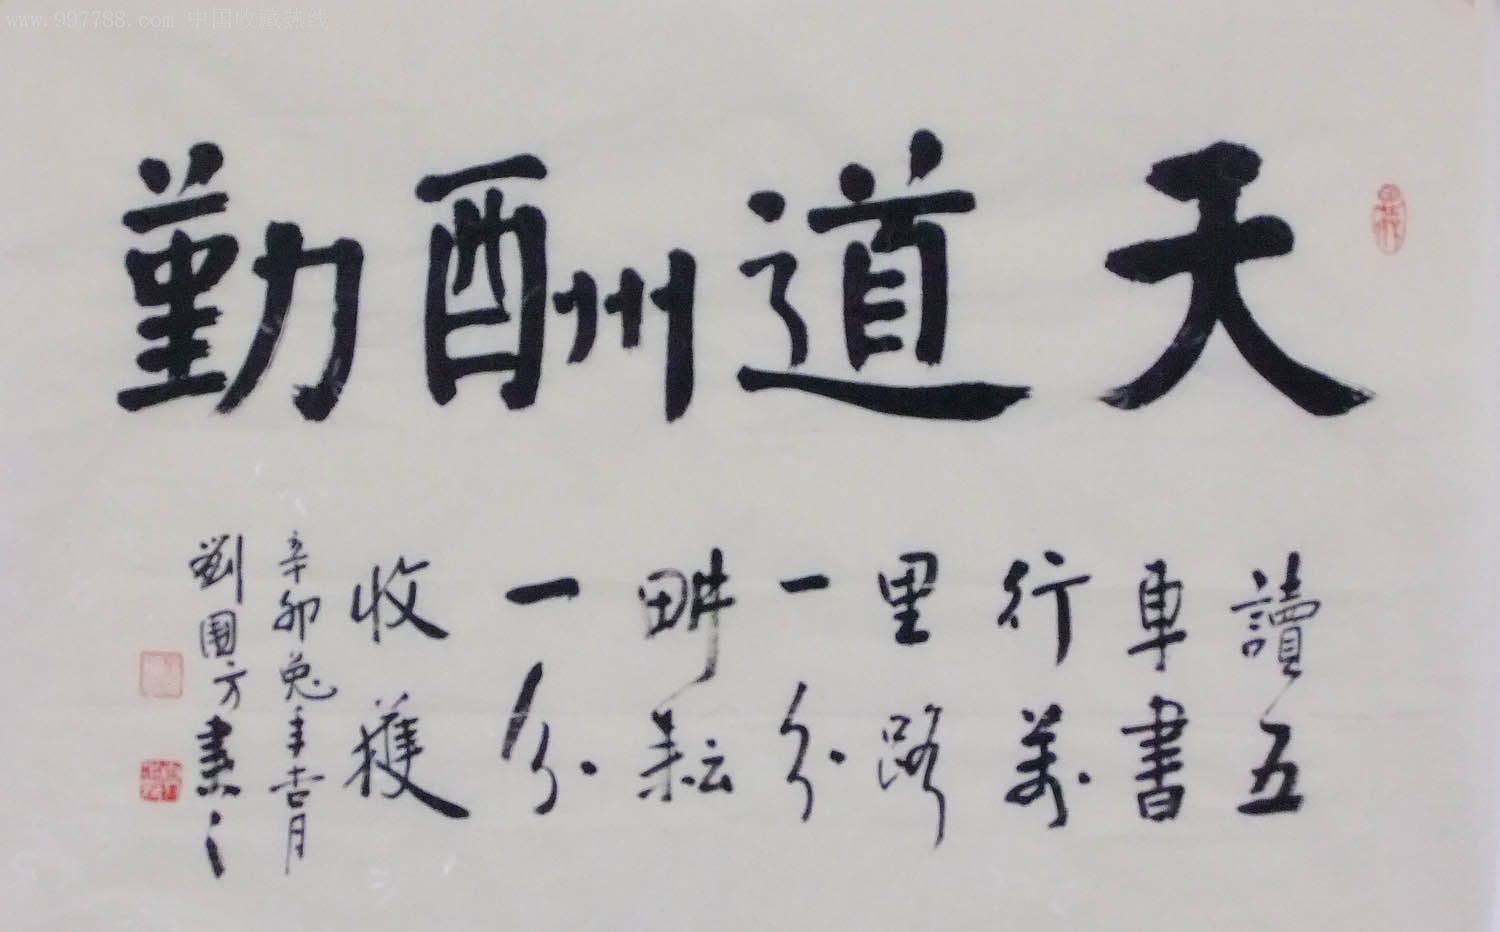 www.997788.com 中国收藏热线
天道酬勤
讀五
車書
行萬
里路
一分
畊耘
一分
收穫
辛卯兔年吉月
劉圍方書之